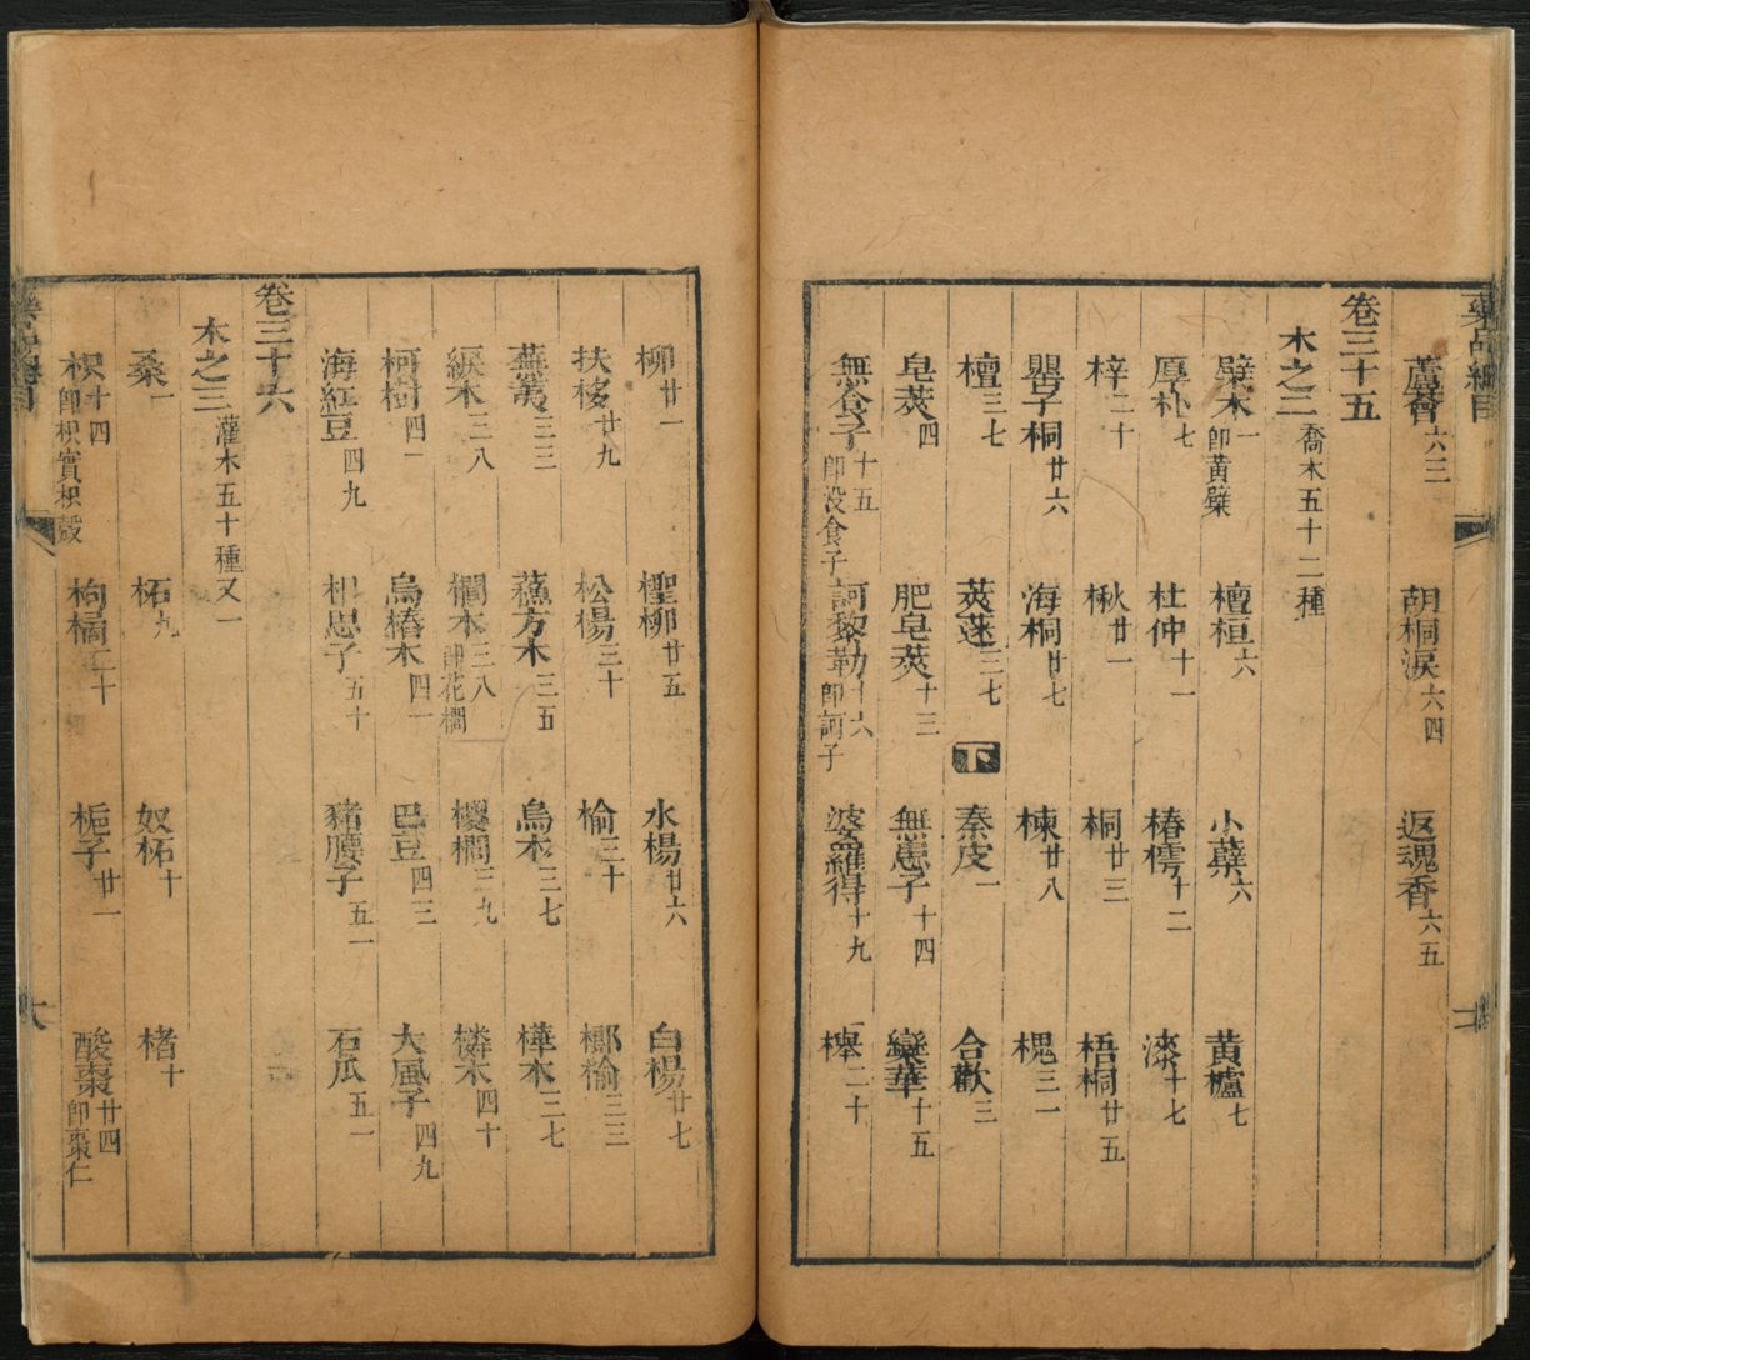 藥品總目
蘆薈六三 胡桐淚六四 返魂香六五
卷三十五
木之二喬木五十二種
檗木一即黃檗 檀桓六 小蘗六 黃櫨七
厚朴七 杜仲十一 椿樗十二 漆十七
梓二十 楸廿一 桐廿三 梧桐廿五
罌子桐廿六 海桐廿七 楝廿八 槐三一
檀三七 莢蒾三七 下 秦皮一 合歡三
皂莢四 肥皂莢十三 無患子十四 欒華十五
無食子十五即沒食子 訶黎勒十六即訶子 婆羅得十九 櫸二十
柳廿一 檉柳廿五 水楊廿六 白楊廿七
扶栘廿九 松楊三十 榆三十 榔榆三三
蕪荑三三 蘇方木三五 烏木三七 樺木三七
緱木三八 櫚木三八即花櫚 椶櫚三九 橉木四十
柯樹四一 烏椿木四一 巴豆四三 大風子四九
海紅豆四九 相思子五十 豬腰子五一 石瓜五一
卷三十六
木之三灌木五十種又一
桑一 柘九 奴柘十 楮十
枳十四即枳實枳殼 枸橘二十 梔子廿一 酸棗廿四即棗仁